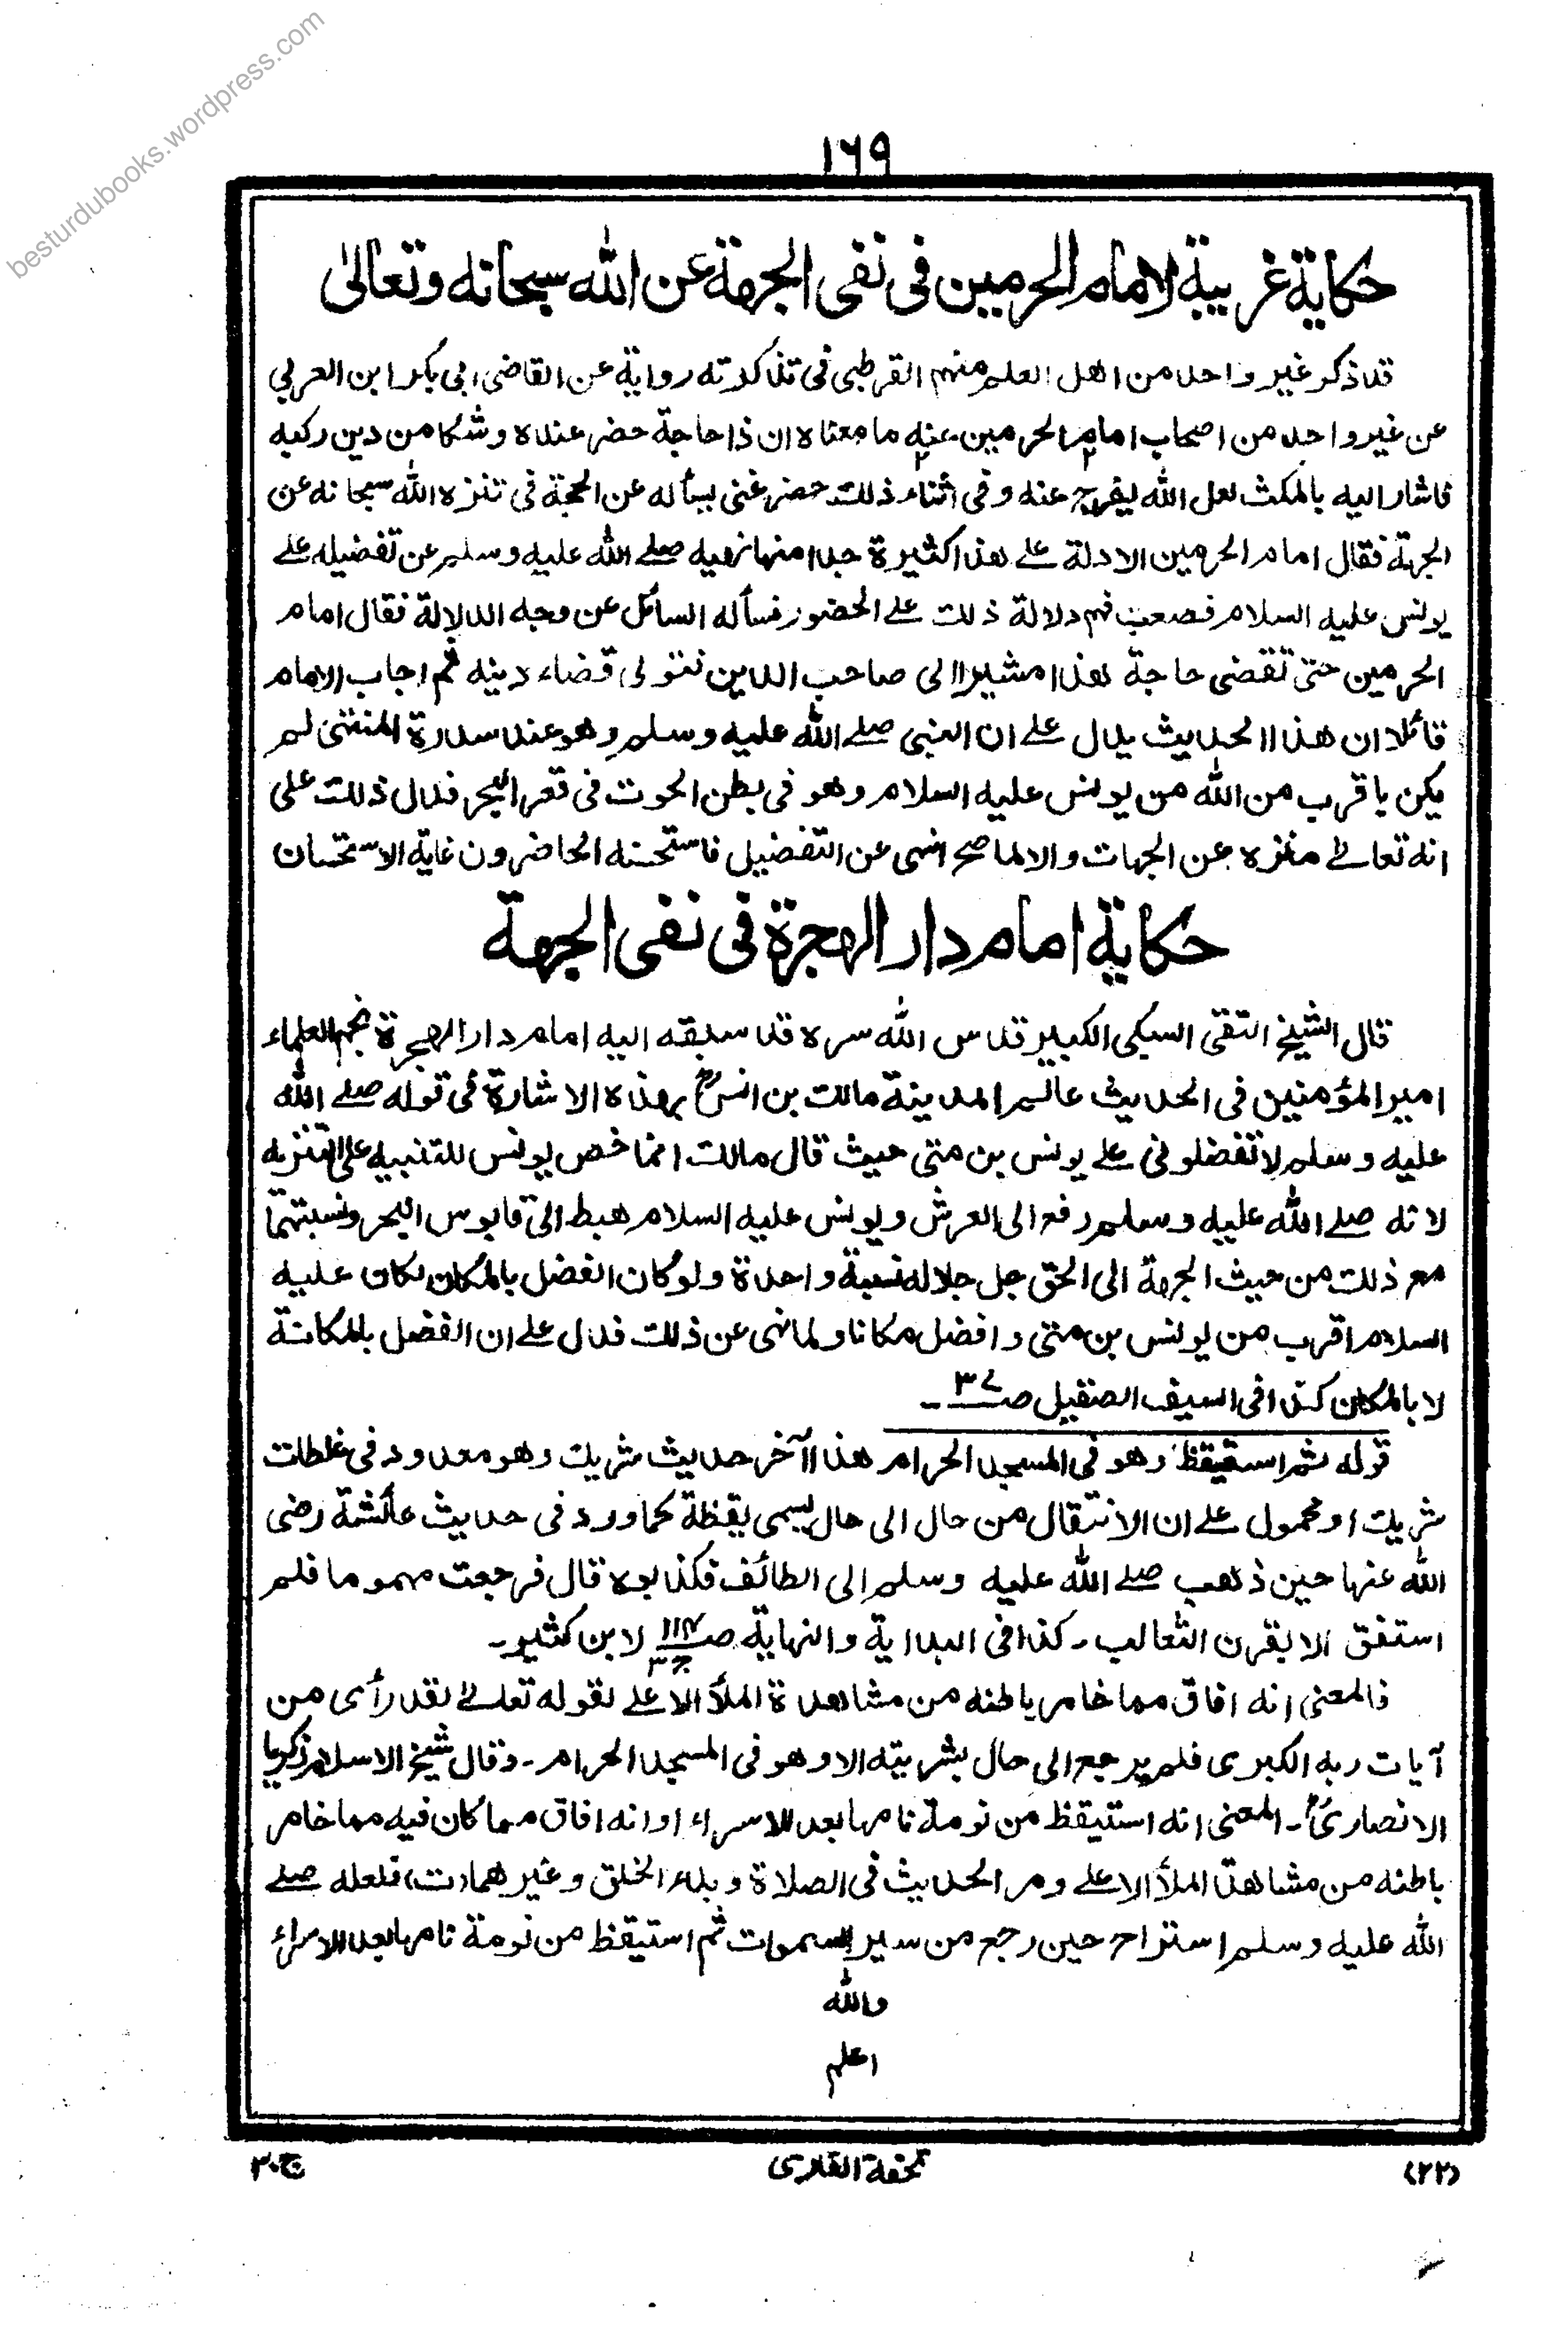 besturdubooks.wordpress.com
١٦٩
حكاية غريبة لامام الحرمين في نفي الجهة عن الله سبحانه وتعالىٰ
قد ذكر غير واحد من اهل العلم منهم القرطبي في تذكرته رواية عن القاضي ابي بكر ابن العربي
عن غير واحد من اصحاب امام الحرمين عنه ما معناه ان ذا حاجة حضر عنده وشكا من دين ركبه
فاشار اليه بالمكث لعل الله ليفرج عنه وفي اثناء ذلك حضر غني يسأله عن الحجة في تنزه الله سبحانه عن
الجهة فقال امام الحرمين الادلة علے هذا كثيرة جدا منها نهيه صلے الله عليه وسلم عن تفضيله علے
يونس عليه السلام فصعب فهم دلالة ذلك علے الحضور فسأله السائل عن وجه الدلالة فقال امام
الحرمين حتى تقضى حاجة هذا مشيرا الى صاحب الدين فتولى قضاء دينه ثم اجاب الامام
قائلا ان هذا الحديث يدل علے ان النبي صلے الله عليه وسلم وهو عند سدرة المنتهى لم
يكن باقرب من الله من يونس عليه السلام وهو في بطن الحوت في قعر البحر فدل ذلك على
انه تعالےٰ منزه عن الجهات والا لما صح النهى عن التفضيل فاستحسنه الحاضرون غاية الاستحسان
حكاية امام دار الهجرة في نفي الجهة
قال الشيخ التقي السبكي الكبير قدس الله سره قد سبقه اليه امام دار الهجرة نجم العلماء
امير المؤمنين في الحديث عالم المدينة مالك بن انسؒ بهذه الاشارة في قوله صلے الله
عليه وسلم لا تفضلوني علے يونس بن متى حيث قال مالك انما خص يونس للتنبيه على التنزيه
لانه صلے الله عليه وسلم رفع الى العرش ويونس عليه السلام هبط الى قابوس البحر ونسبتهما
مع ذلك من حيث الجهة الى الحق جل جلاله نسبة واحدة ولو كان الفضل بالمكان لكان عليه
السلام اقرب من يونس بن متى وافضل مكانا ولما نهى عن ذلك فدل علے ان الفضل بالمكانة
لا بالمكان كذا في السيف الصقيل صـ٣٧ ـ
قوله ثم استيقظ وهو في المسجد الحرام هذا آخر حديث شريك وهو معدود في غلطات
شريك او محمول علے ان الانتقال من حال الى حال يسمى يقظة كما ورد في حديث عائشة رضي
الله عنها حين ذهب صلے الله عليه وسلم الى الطائف فكذبوه قال فرجعت مهموما فلم
استفق الا بقرن الثعالب ـ كذا في البداية والنهاية صـ١١٤ ج٣ لابن كثير ـ
فالمعنى انه افاق مما خامر باطنه من مشاهدة الملأ الاعلے لقوله تعالےٰ لقد رأى من
آيات ربه الكبرى فلم يرجع الى حال بشريته الا وهو في المسجد الحرام ـ وقال شيخ الاسلام زكريا
الانصاريؒ ـ المعنى انه استيقظ من نومة نامها بعد الاسراء او انه افاق مما كان فيه مما خامر
باطنه من مشاهدة الملأ الاعلے ومر الحديث في الصلاة وبدء الخلق وغيرهما (ت) فلعله صلے
الله عليه وسلم استراح حين رجع من سير السموات ثم استيقظ من نومة نامها بعد الاسراء
والله
اعلم
(٢٢)
تحفة القاري
ج ـ ٣